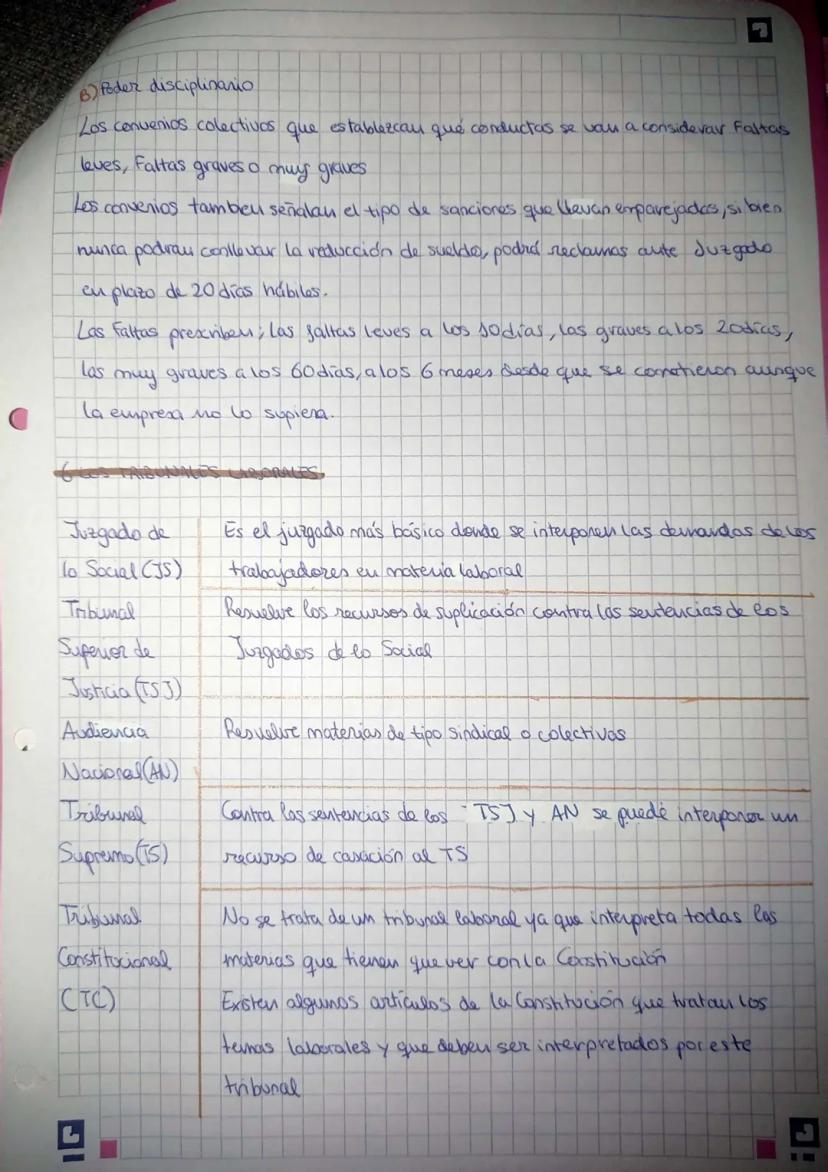 B) Poder disciplinario
Los convenios colectivos que establezcan qué conductas se van a considerar Faltas
leves, Faltas graves o muy graves
Los convenios tambien señalan el tipo de sanciones que llevan emparejadas, si bien
nunca podran conllevar la reducción de sueldo, podrá reclamas ante Juzgado
en plazo de 20 días hábiles.
Las Faltas prescriben; las faltas leves a los 10 días, las graves a los 20 días,
las muy graves a los 60 días, a los 6 meses desde que se cometieron aunque
la empresa no lo supiera.
6 LOS TRIBUNALES LABORALES
Juzgado de Es el juzgado más básico donde se interponen las demandas de los
lo Social (JS) trabajadores en materia laboral
Tribunal Resuelve los recursos de suplicación contra las sentencias de los
Superior de Juzgados de lo Social
Justicia (TSJ)
Audiencia Resuelve materias de tipo sindical o colectivos
Nacional (AN)
Tribunal Contra las sentencias de los TSJ y AN se puede interponer un
Supremo (TS) recurso de casación al TS
Tribunal No se trata de un tribunal laboral ya que interpreta todas las
Constitucional materias que tienen que ver con la Constitución
(TC) Existen algunos artículos de la Constitución que tratan los
temas laborales y que deben ser interpretados por este
tribunal